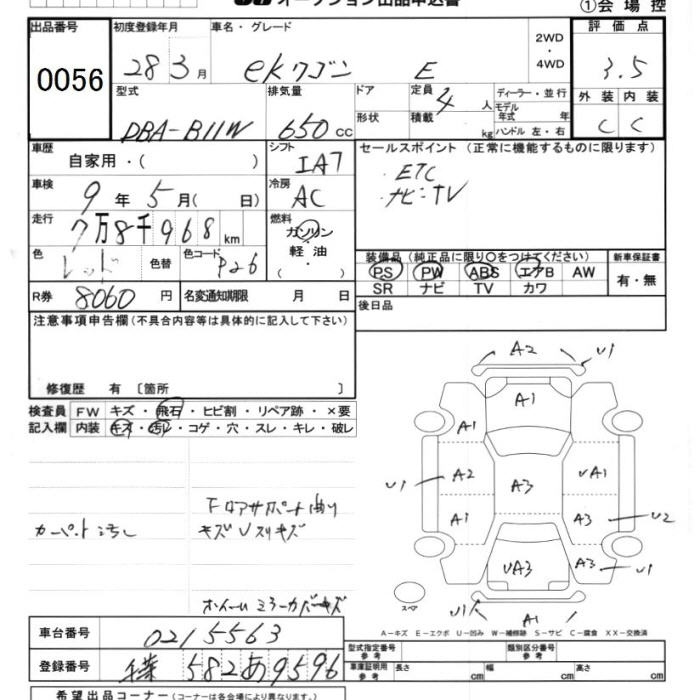 オークション出品申込書
①会場控
出品番号
0056
初度登録年月
28 3月
車名・グレード
ekワゴン E
2WD
・
4WD
評価点
3.5
外装 内装
C C
型式
DBA-B11W
排気量
650 cc
ドア
形状
定員
4 人
積載
kg
ディーラー・並行
モデル
年式 年
ハンドル 左・右
車歴
自家用・( )
シフト
IA7
セールスポイント(正常に機能するものに限ります)
・ETC
・ナビ・TV
車検
9年 5月( 日)
冷房
AC
走行
7万8千968 km
燃料
ガソリン
軽油
色
レッド
色替
色コード
P26
装備品(純正品に限り○をつけてください)
PS PW ABS エアB AW
SR ナビ TV カワ
新車保証書
有・無
R券
8060 円
名変通知期限 月 日
後日品
注意事項申告欄(不具合内容等は具体的に記入して下さい)
修復歴 有 〔箇所 〕
検査員
記入欄
FW キズ・飛石・ヒビ割・リペア跡・×要
内装 キズ・汚レ・コゲ・穴・スレ・キレ・破レ
カーペット汚レ
Fロアサポート曲り
キズVスリキズ
ホイールミラーカバーキズ
A2 U1
A1
A1
U1 A2 A3 UA1
A1 A3 U2
UA3 A3 U1
U1 A1
スペア
A-キズ E-エクボ U-凹み W-補修跡 S-サビ C-腐食 XX-交換済
車台番号
0215563
登録番号
千葉 582 あ 9596
型式指定番号
参考
類別区分番号
参考
車庫証明用
参考
長さ cm
幅 cm
高さ cm
希望出品コーナー(コーナーは各会場により異なります。)